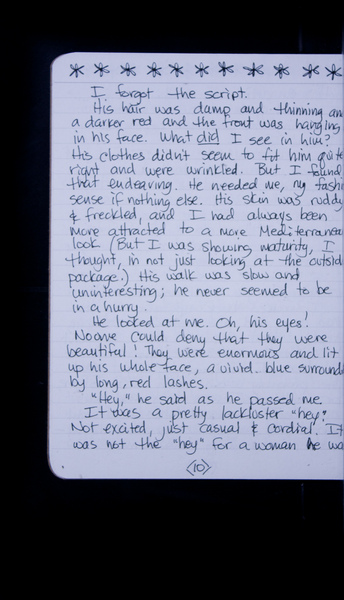 I forgot the script.
His hair was damp and thinning an
a darker red and the front was hanging
in his face. What did I see in him?
His clothes didn't seem to fit him quite
right and were wrinkled. But I found
that endearing. He needed me, my fashi
sense if nothing else. His skin was ruddy
& freckled, and I had always been
more attracted to a more Mediterranea
look (But I was showing maturity, I
thought, in not just looking at the outsid
package.) His walk was slow and
uninteresting; he never seemed to be
in a hurry.
He looked at me. Oh, his eyes!
No one could deny that they were
beautiful! They were enormous and lit
up his whole face, a vivid blue surround
by long, red lashes.
"Hey," he said as he passed me.
It was a pretty lackluster "hey".
Not excited, just casual & cordial. It
was not the "hey" for a woman he wa
<10>